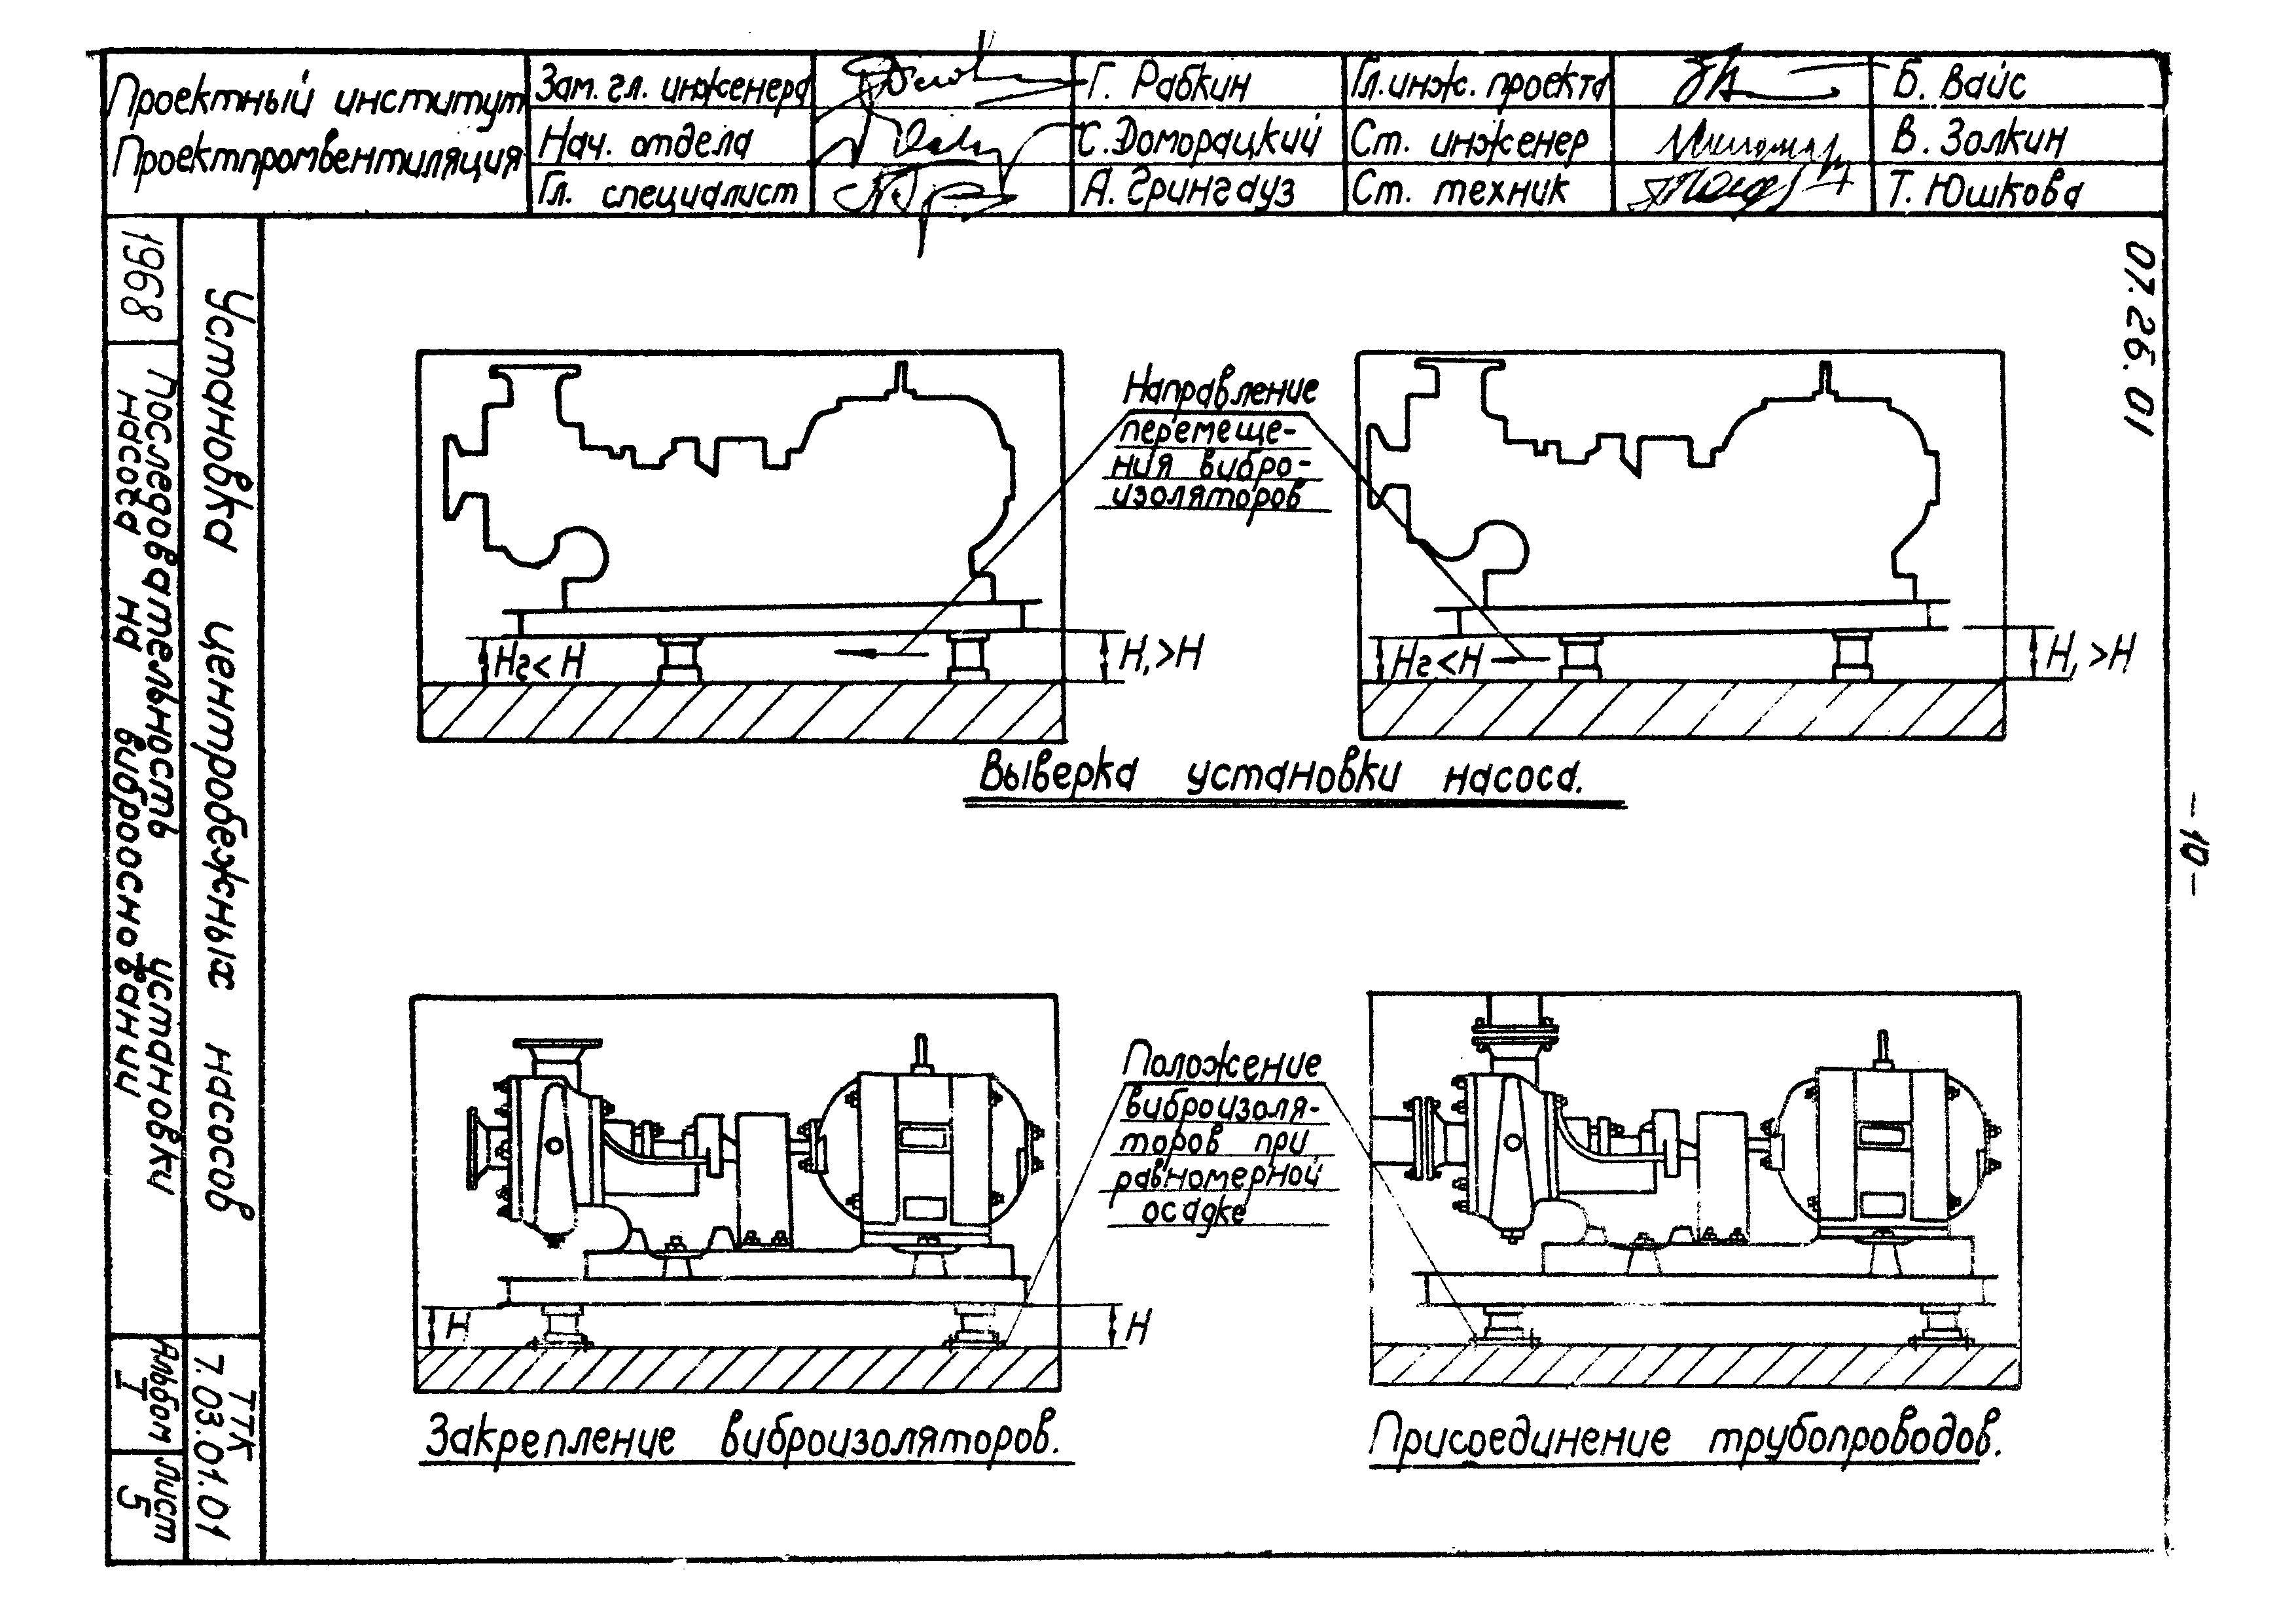 Проектный институт
Проектпромвентиляция
Зам. гл. инженера
Г. Рабкин
Гл. инж. проекта
Б. Вайс
Нач. отдела
С. Доморацкий
Ст. инженер
В. Золкин
Гл. специалист
А. Грингауз
Ст. техник
Т. Юшкова
1968
Последовательность установки
насоса на виброосновании
Установка центробежных насосов
Альбом
I
Лист
5
ТТК
7.03.01.01
07.26.01
-10-
Направление
перемеще-
ния вибро-
изоляторов
Нг<Н
Н₁>Н
Нг<Н
Н₁>Н
Выверка установки насоса.
Положение
виброизоля-
торов при
равномерной
осадке
Н
Н
Закрепление виброизоляторов.
Присоединение трубопроводов.